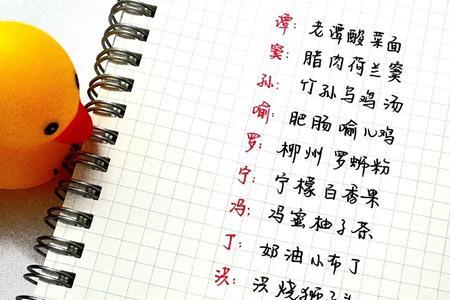 谭：老谭酸菜面
窦：腊肉荷兰窦
孙：竹孙乌鸡汤
喻：肥肠喻儿鸡
罗：柳州罗蛳粉
宁：宁檬百香果
冯：冯蜜柚子茶
丁：奶油小布丁
洪：洪烧狮子